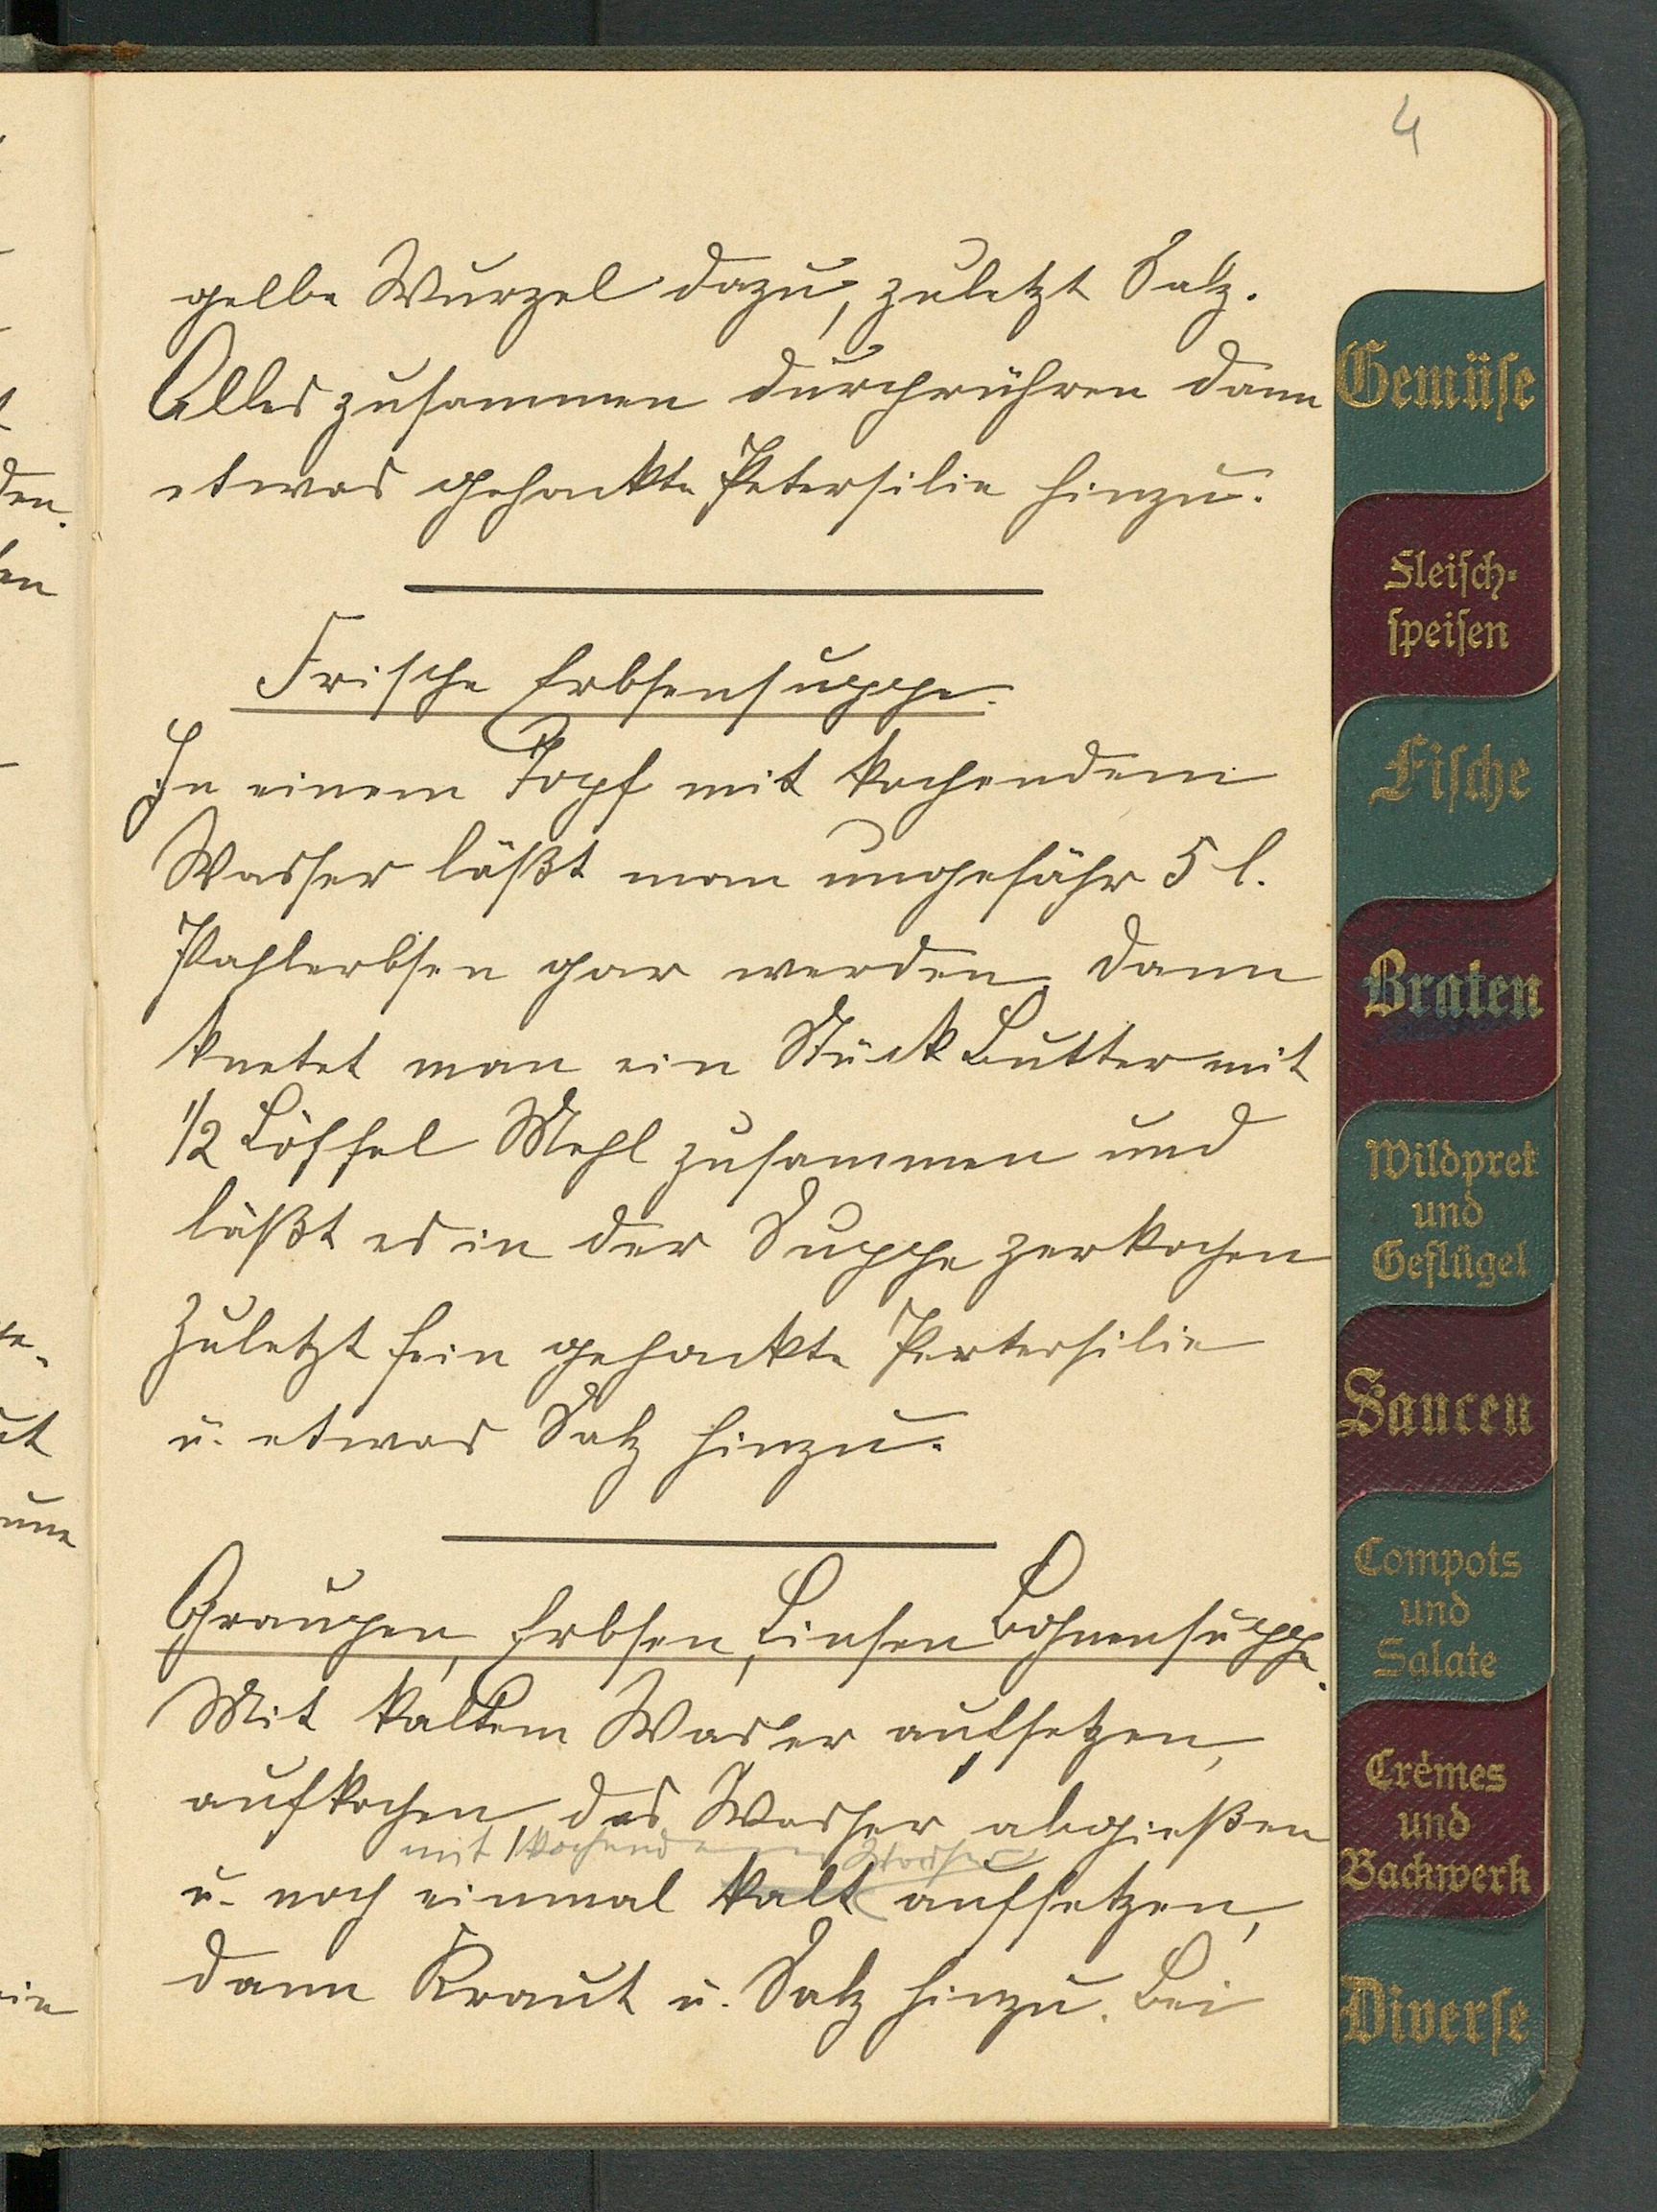 4
gelbe Wurzel dazu, zuletzt Salz.
Alles zusammen durchrühren dann
etwas gehackte Petersilie hinzu.
Frische Erbsensuppe.
In einem Topf mit kochendem
Wasser läßt man ungefähr 5 l.
Pahlerbsen gar werden. Dann
knetet man ein Stück Butter mit
1/2 Löffel Mehl zusammen und
läßt es in der Suppe zerkochen
Zuletzt fein gehackte Pertersilie
u. etwas Salz hinzu.
Graupen, Erbsen, Linsen Bohnensuppe.
Mit kaltem Wasser aufsetzen,
aufkochen, das Wasser abgießen
mit kochendem Wasser
u. noch einmal kalt aufsetzen,
dann Kraut u. Salz hinzu. Bei
Gemüse
Fleisch-
speisen
Fische
Braten
Wildpret
und
Geflügel
Saucen
Compots
und
Salate
Crèmes
und
Backwerk
Diverse